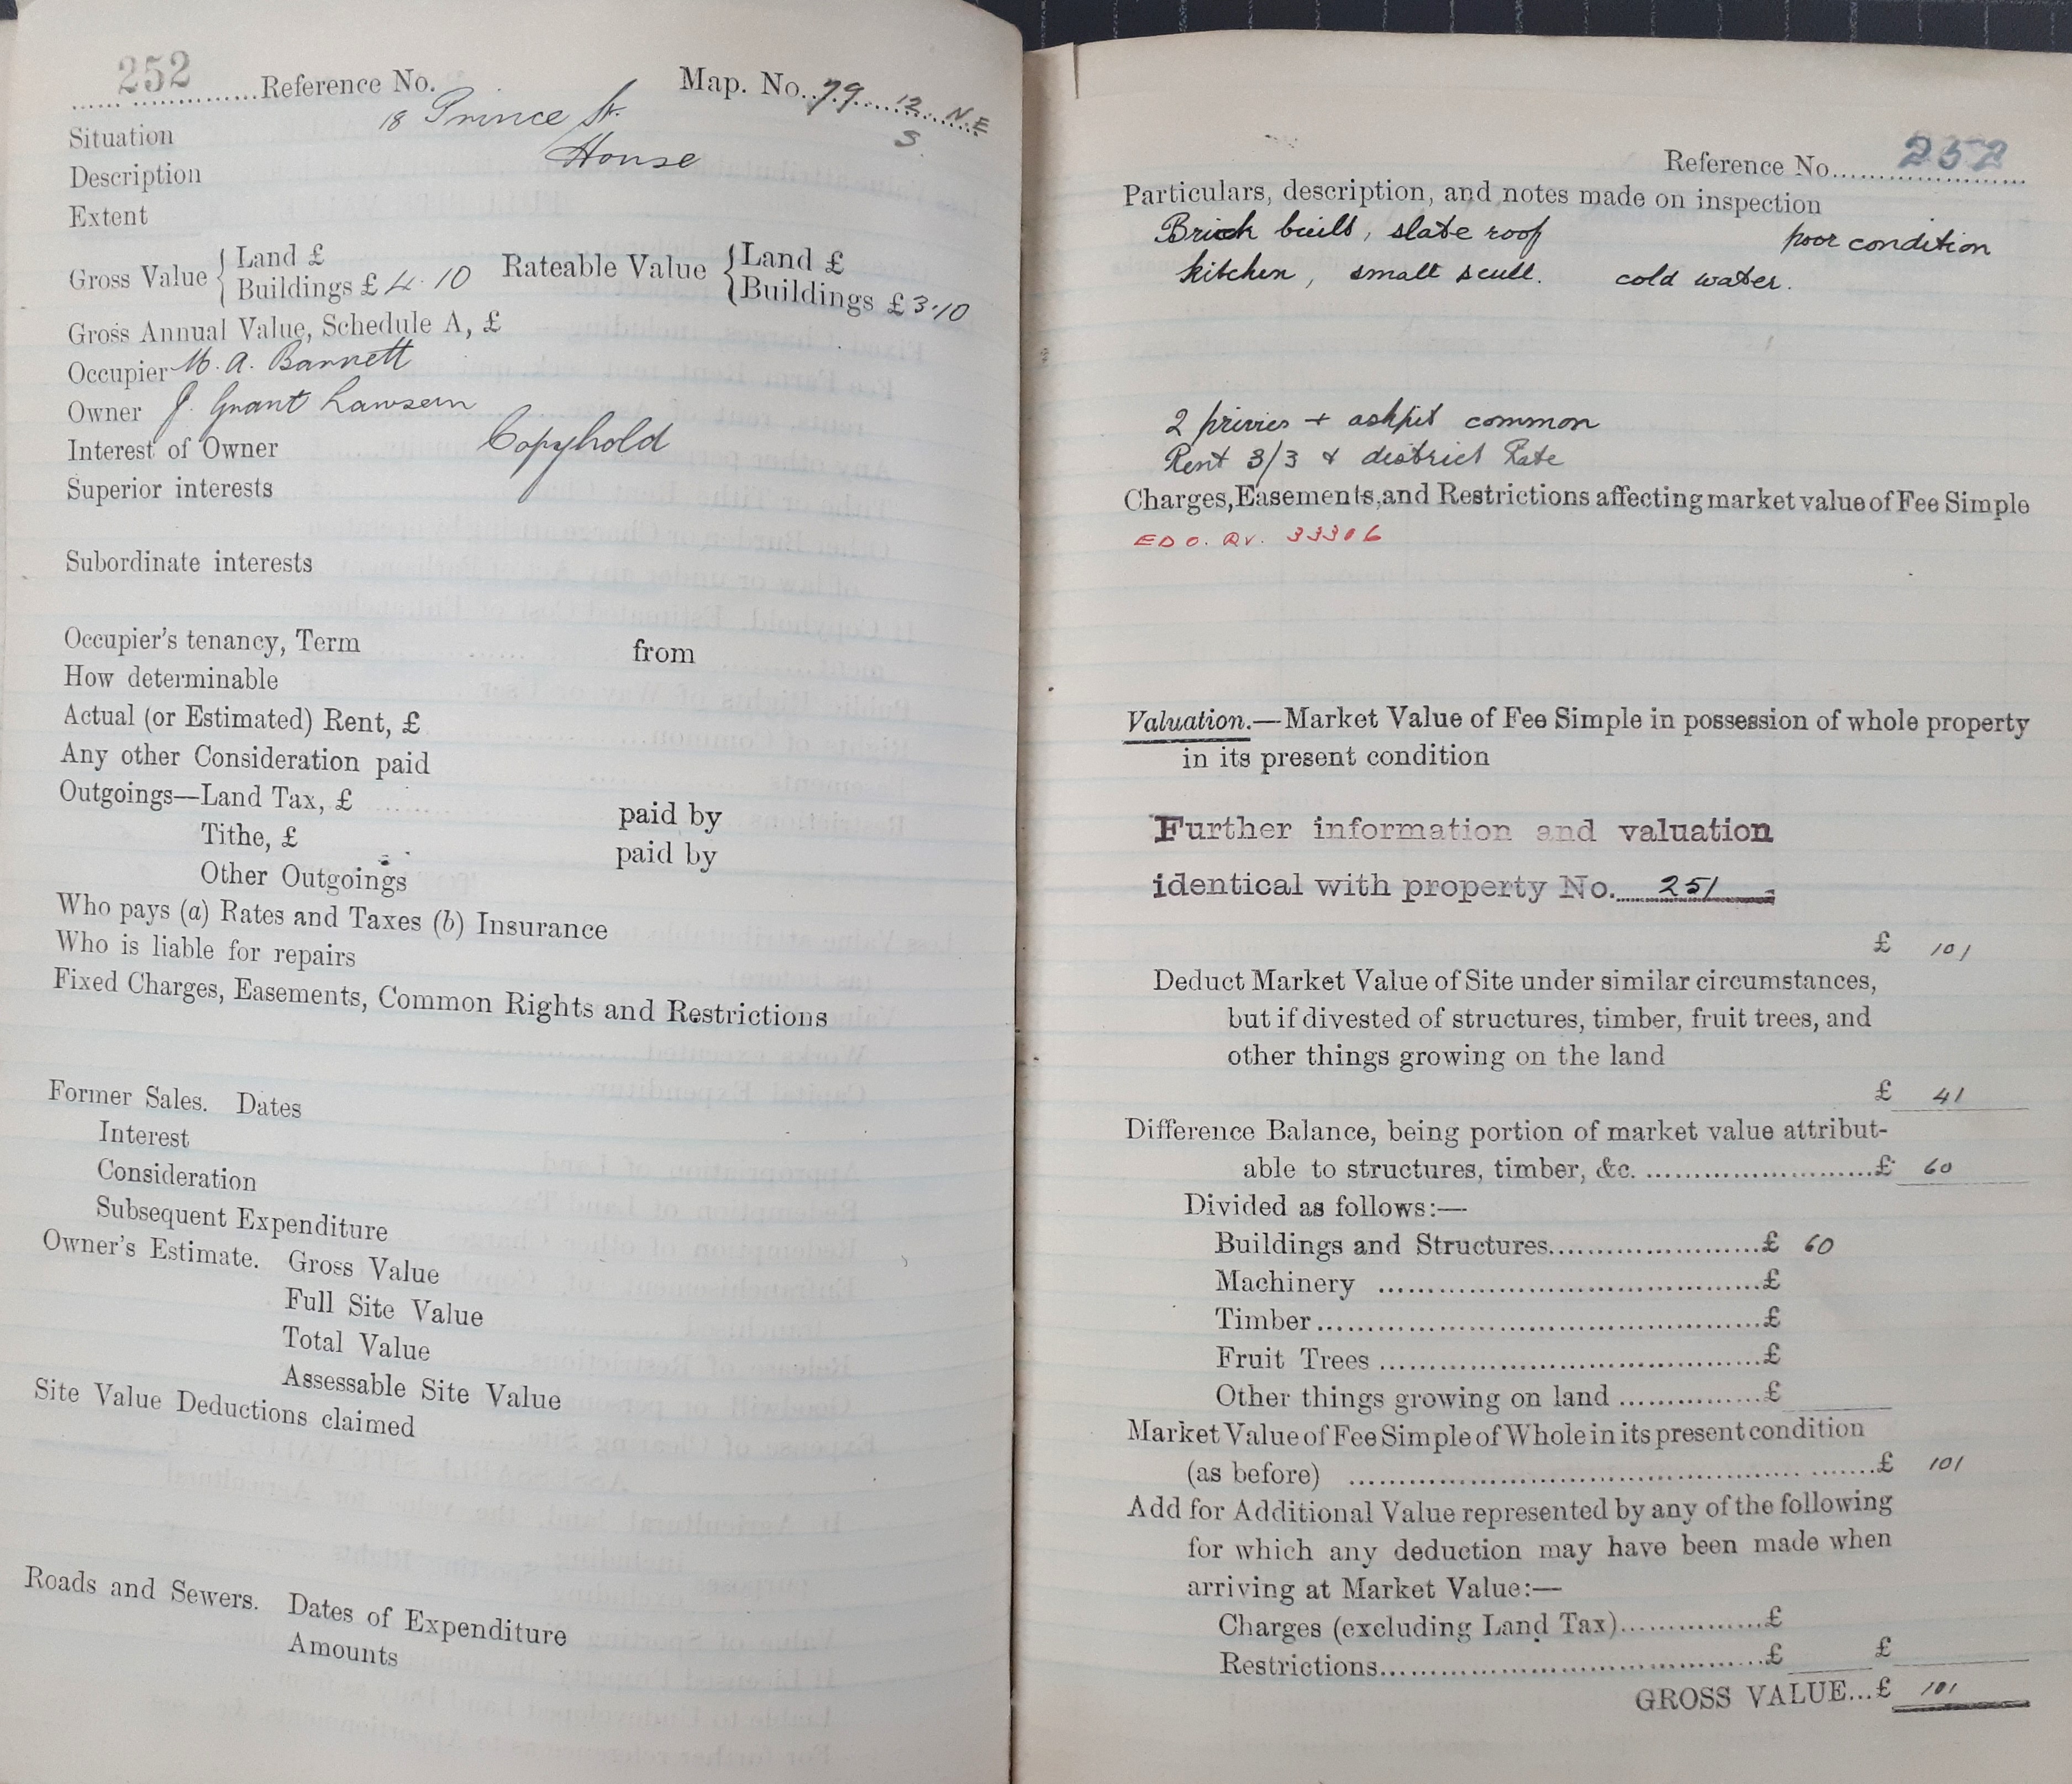 252 Reference No. Map. No. 79 12 N.E
S
Situation 18 Prince St.
Description House
Extent
Gross Value { Land £ Rateable Value { Land £
Buildings £ 4.10 Buildings £ 3.10
Gross Annual Value, Schedule A, £
Occupier M. A. Barnett
Owner J. Grant Lawson
Interest of Owner Copyhold
Superior interests
Subordinate interests
Occupier's tenancy, Term from
How determinable
Actual (or Estimated) Rent, £
Any other Consideration paid
Outgoings—Land Tax, £ paid by
Tithe, £ paid by
Other Outgoings
Who pays (a) Rates and Taxes (b) Insurance
Who is liable for repairs
Fixed Charges, Easements, Common Rights and Restrictions
Former Sales. Dates
Interest
Consideration
Subsequent Expenditure
Owner's Estimate. Gross Value
Full Site Value
Total Value
Assessable Site Value
Site Value Deductions claimed
Roads and Sewers. Dates of Expenditure
Amounts
Reference No. 252
Particulars, description, and notes made on inspection
Brick built, slate roof poor condition
kitchen, small scull. cold water.
2 privies + ashpit common
Rent 3/3 & district Rate
Charges, Easements, and Restrictions affecting market value of Fee Simple
EDO. Rv. 33306
Valuation.—Market Value of Fee Simple in possession of whole property
in its present condition
Further information and valuation
identical with property No. 251
£ 101
Deduct Market Value of Site under similar circumstances,
but if divested of structures, timber, fruit trees, and
other things growing on the land
£ 41
Difference Balance, being portion of market value attribut-
able to structures, timber, &c. £ 60
Divided as follows:—
Buildings and Structures £ 60
Machinery £
Timber £
Fruit Trees £
Other things growing on land £
Market Value of Fee Simple of Whole in its present condition
(as before) £ 101
Add for Additional Value represented by any of the following
for which any deduction may have been made when
arriving at Market Value:—
Charges (excluding Land Tax) £
Restrictions £ £
GROSS VALUE...£ 101